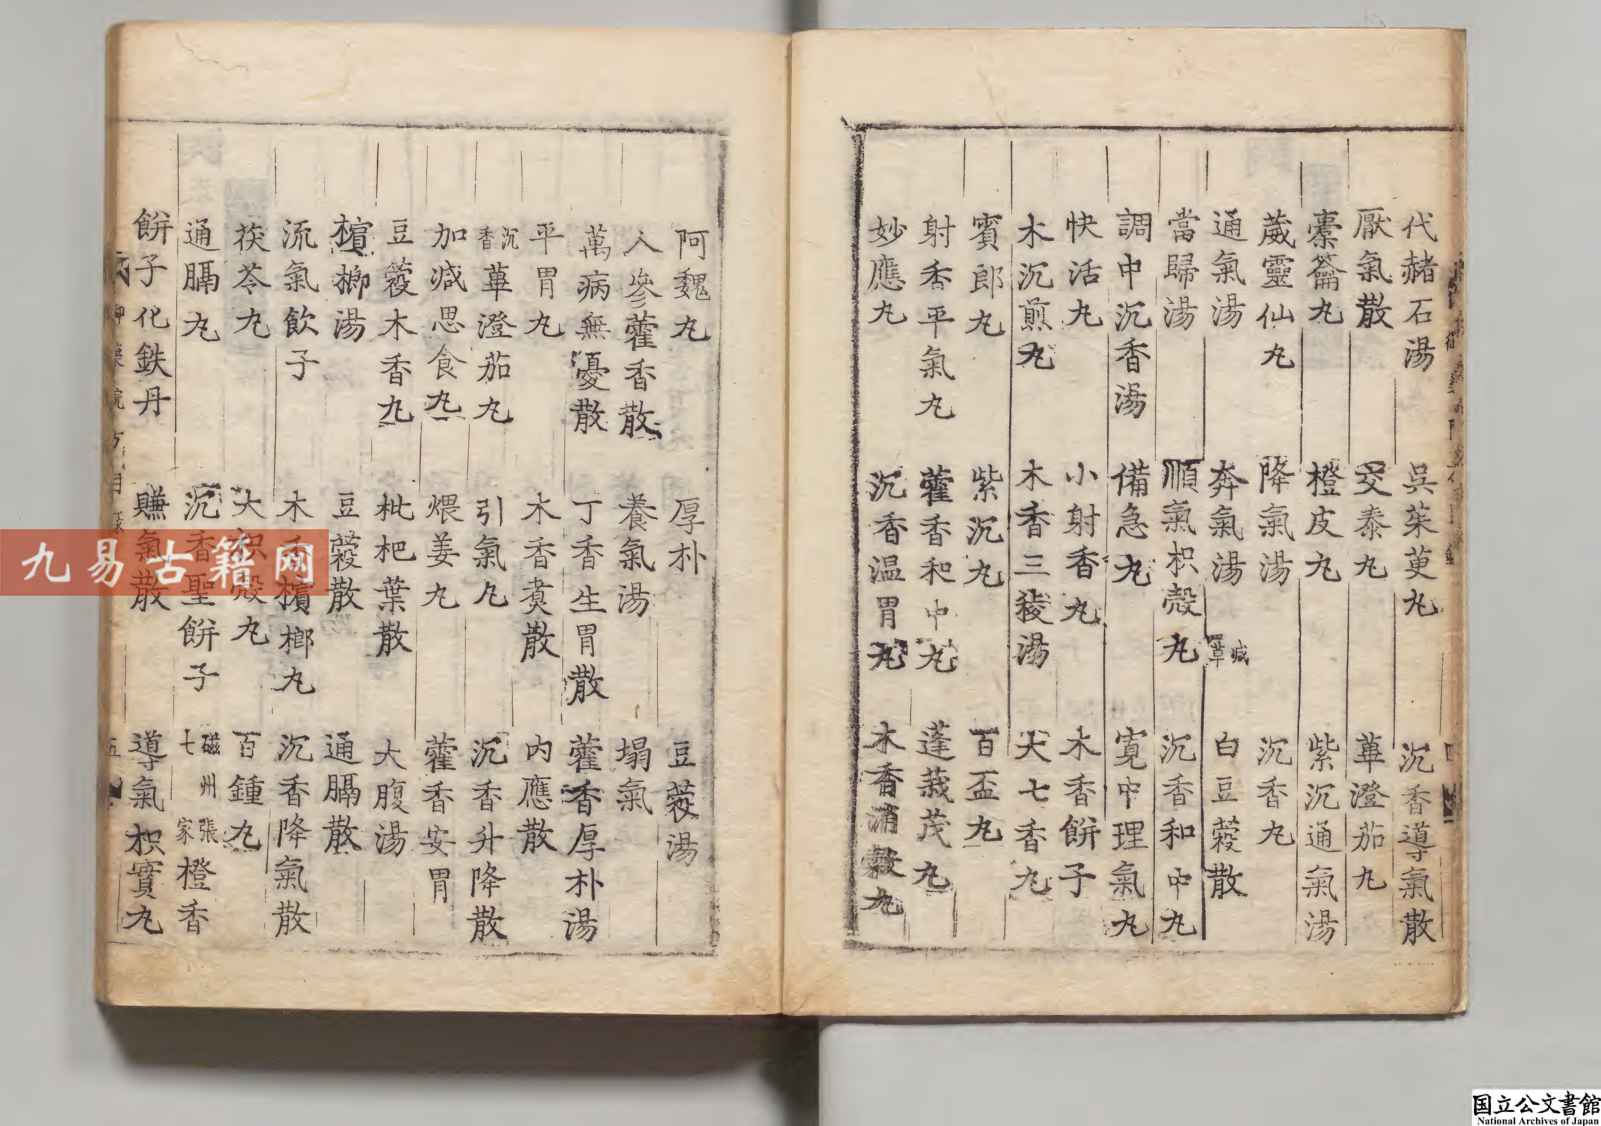 代赭石湯 吳茱萸九 沉香導氣散
厭氣散 交泰九 蓽澄茄九
橐籥九 橙皮九 紫沉通氣湯
葳靈仙九 降氣湯 沉香九
通氣湯 奔氣湯 白豆蔻散
當歸湯 順氣枳殼九 沉香和中九
調中沉香湯 備急九 寬中理氣九
快活九 小射香九 木香餅子
木沉煎九 木香三稜湯 大七香九
賓郎九 紫沉九 百盃九
射香平氣九 藿香和中九 蓬莪茂九
妙應九 沉香温胃九 木香消穀九
阿魏九 厚朴 豆蔻湯
人參藿香散 養氣湯 塌氣
萬病無憂散 丁香生胃散 藿香厚朴湯
平胃九 木香煑散 內應散
沉香蓽澄茄九 引氣九 沉香升降散
加減思食九 煨姜九 藿香安胃
豆蔻木香九 枇杷葉散 大腹湯
檳榔湯 豆蔻散 通膈散
流氣飲子 木香檳榔九 沉香降氣散
茯苓九 大枳殼九 百鍾九
通膈九 沉香聖餅子 磁州張七家橙香
餅子化鉄丹 賺氣散 導氣枳實九
御藥院方目錄 五
九易古籍网
国立公文書館
National Archives of Japan